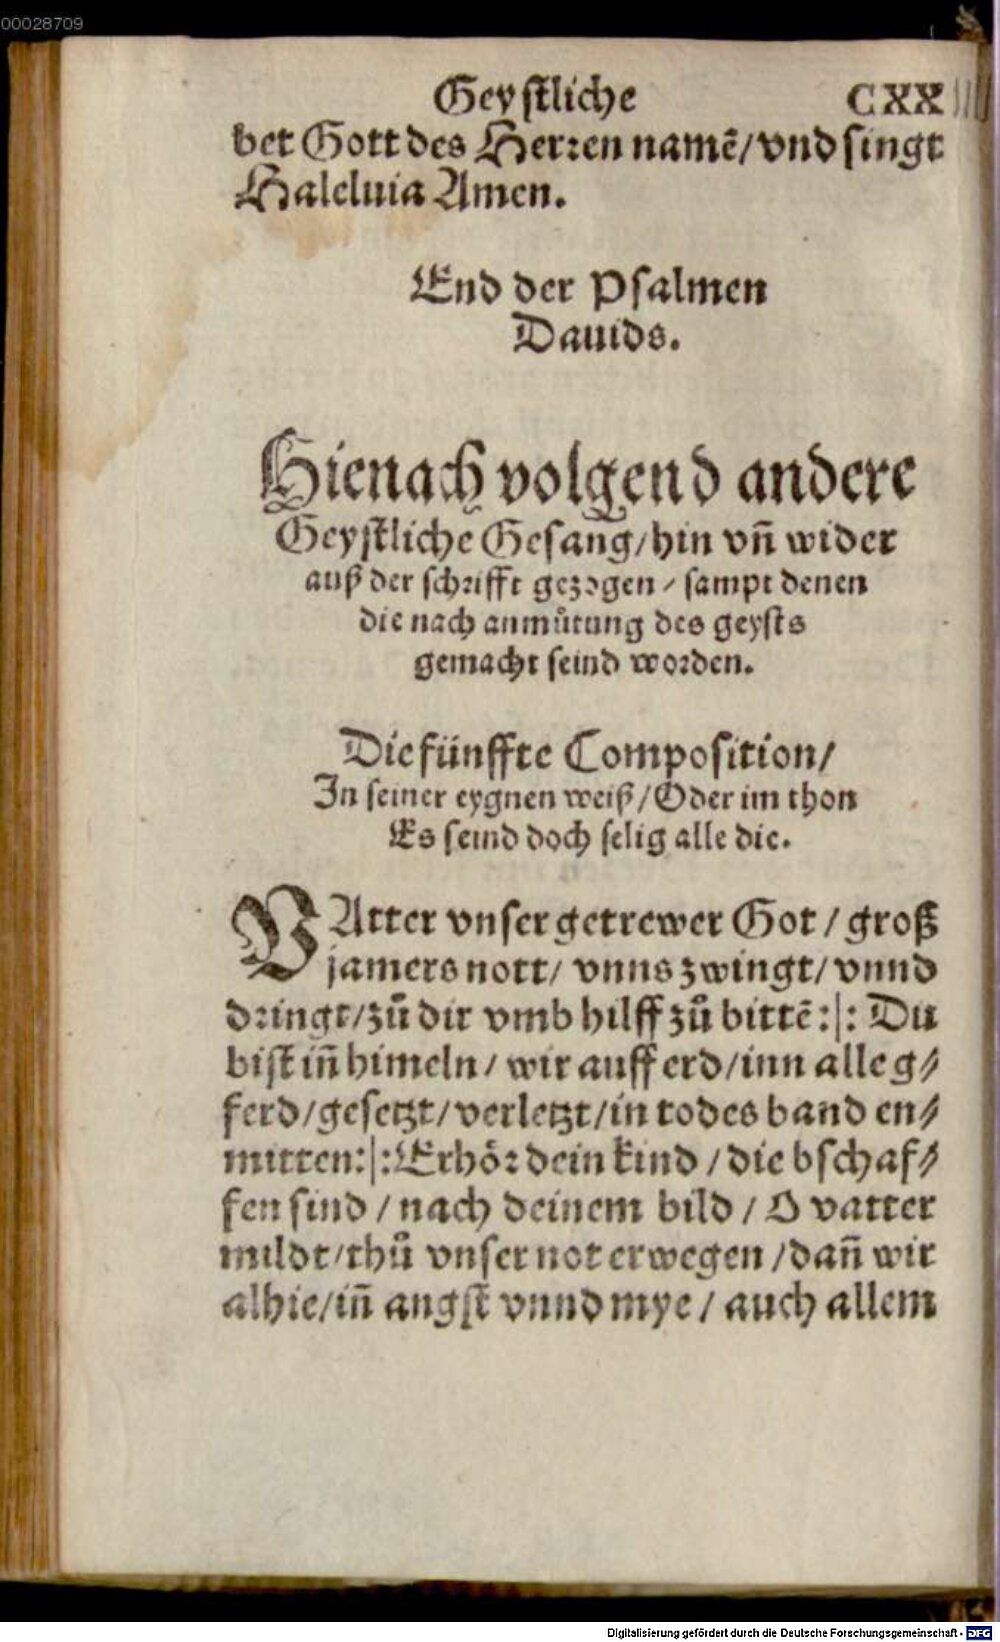 00028709
Geystliche CXX
bet Gott des Herren namē/ vnd singt
Haleluia Amen.
End der Psalmen
Dauids.
Hienach volgend andere
Geystliche Gesang/ hin vñ wider
auß der schrifft gezogen / sampt denen
die nach anmůtung des geysts
gemacht seind worden.
Die fünffte Composition/
In seiner eygnen weiß / Oder im thon
Es seind doch selig alle die.
VAtter vnser getrewer Got / groß
jamers nott/ vnns zwingt/ vnnd
dringt/ zů dir vmb hilff zů bittē:|: Du
bist iñ himeln / wir auff erd/ inn alle g⸗
ferd/ gesetzt/ verletzt/ in todes band en⸗
mitten:|: Erhör dein kind / die bschaf⸗
fen sind / nach deinem bild / O vatter
mildt/ thů vnser not erwegen / dañ wir
alhie/ iñ angst vnnd mye / auch allem
Digitalisierung gefördert durch die Deutsche Forschungsgemeinschaft - DFG